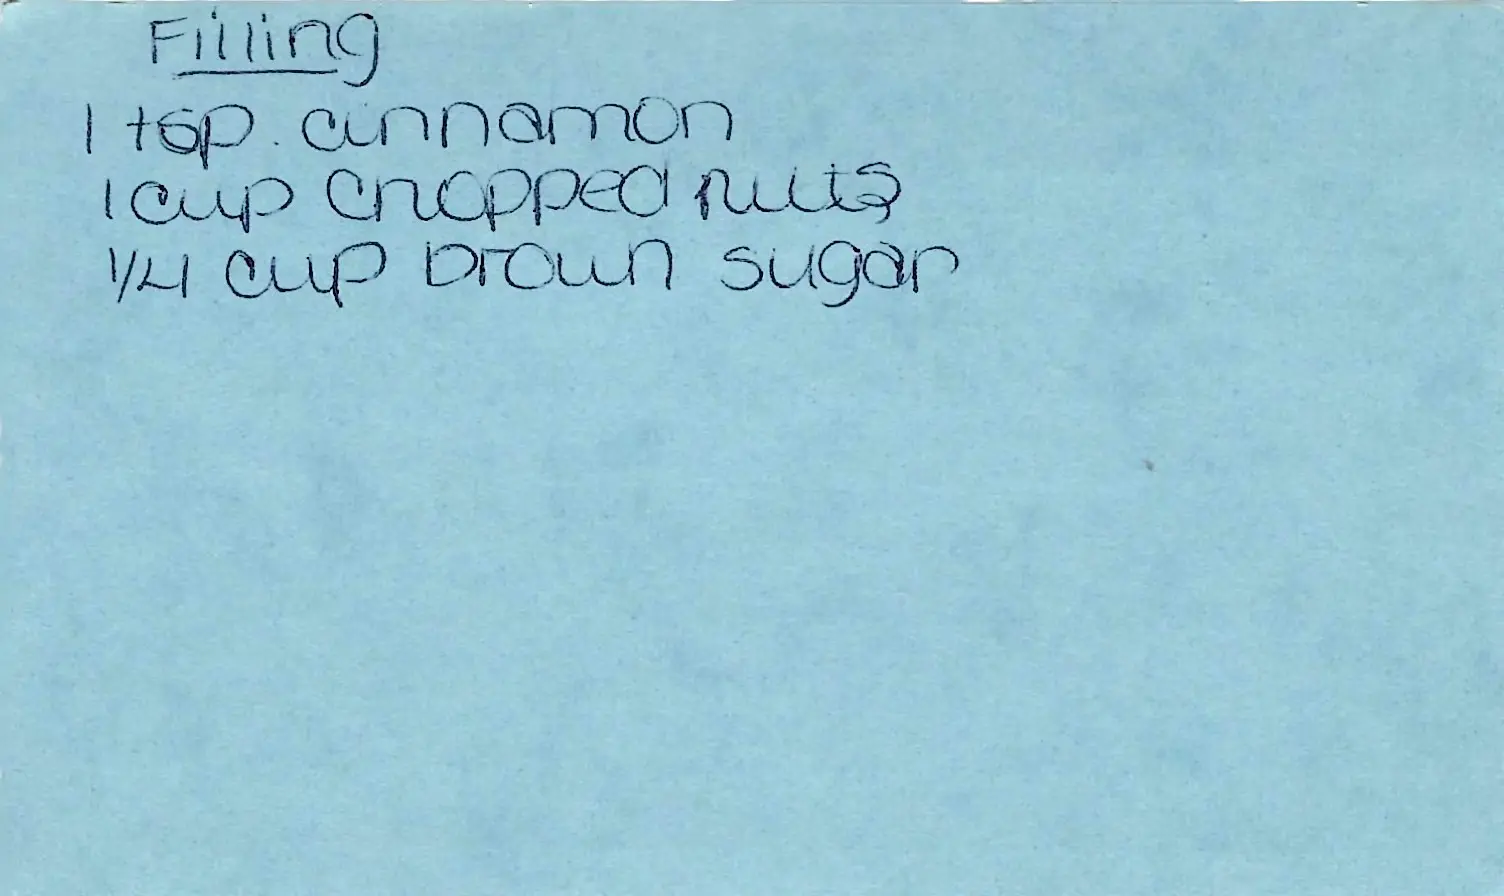 Filling
1 tsp. cinnamon
1 cup chopped nuts
1/4 cup brown sugar